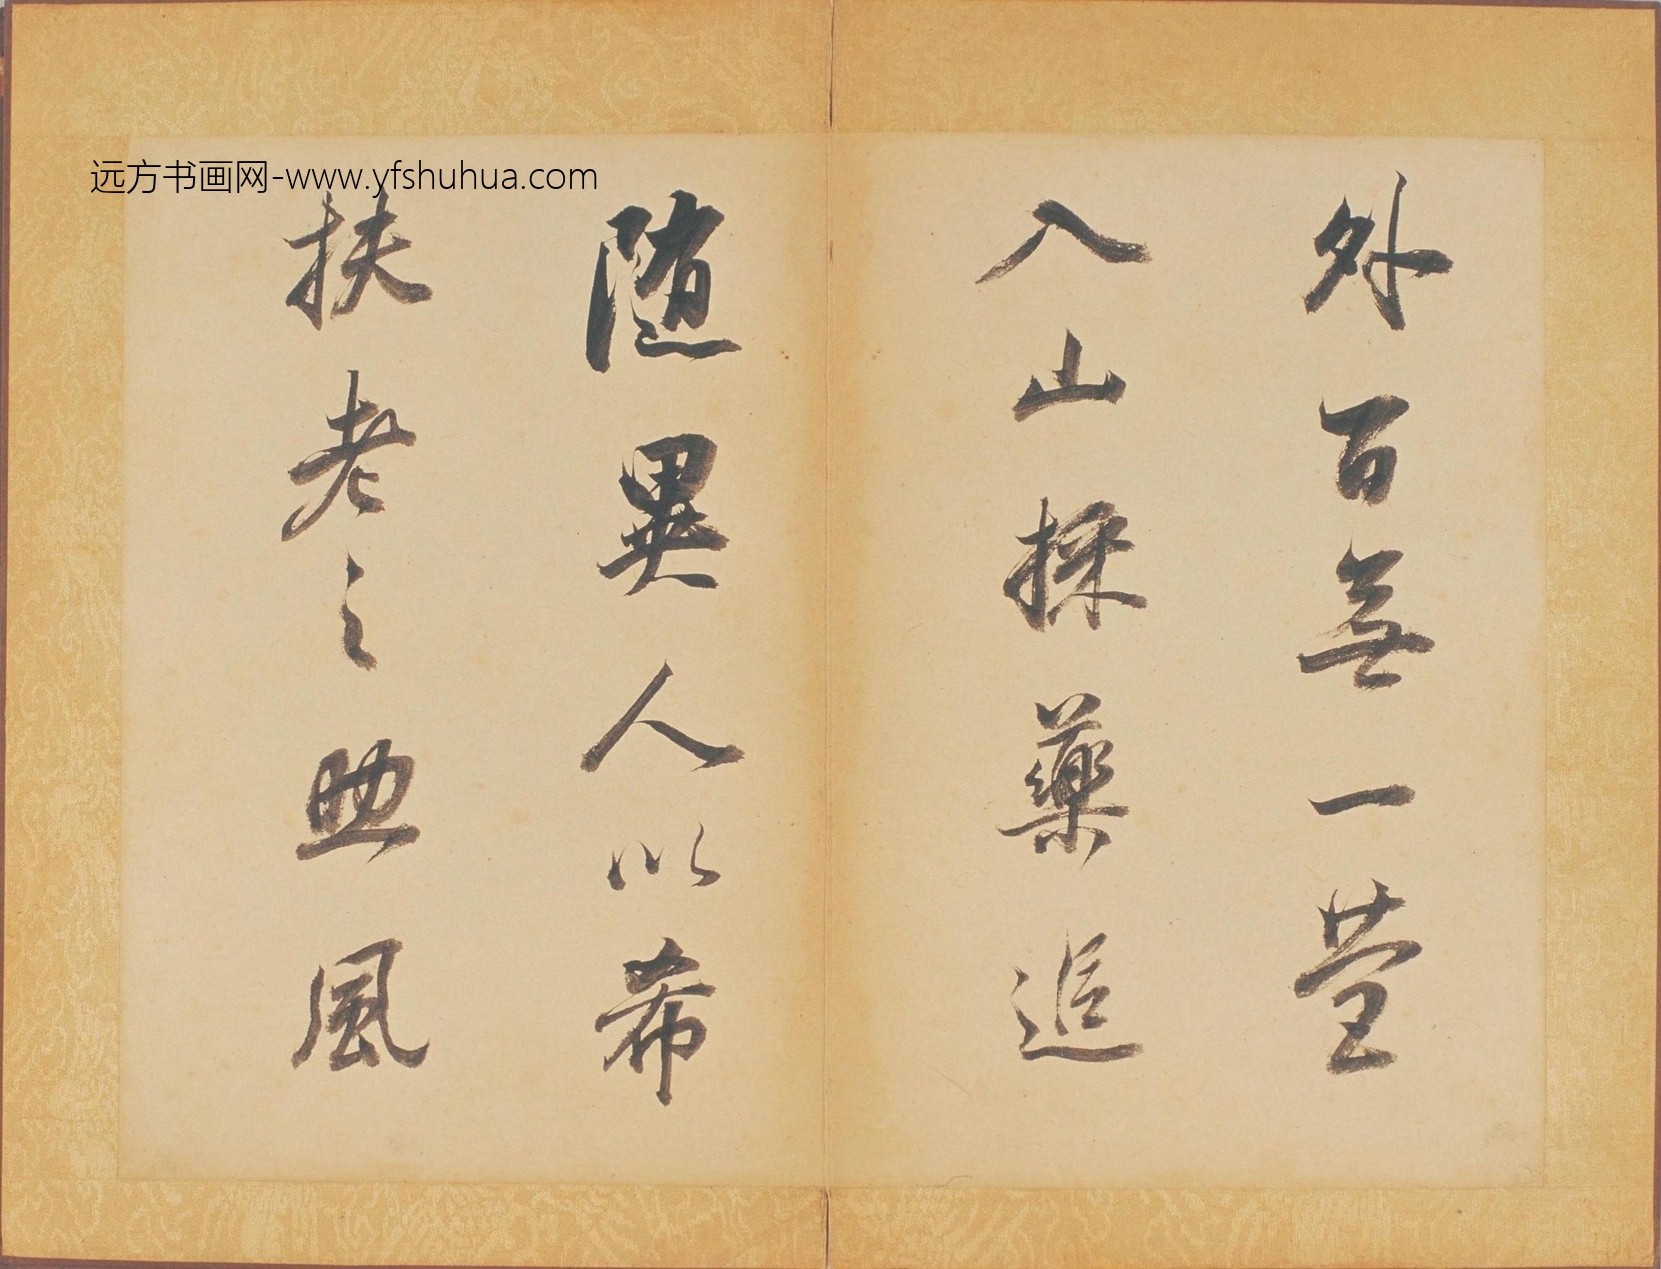 远方书画网-www.yfshuhua.com
外百無一營
入山採藥追
隨異人以希
扶老之助風